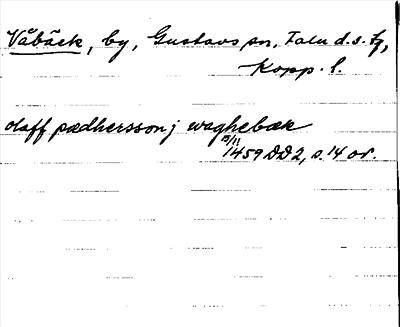 Våbäck, by, Gustavs sn, Falu d.s. tg,
Kopp. l.
olaff pædhersson j waghebæk
5/11
1459 DD2, s. 14 or.